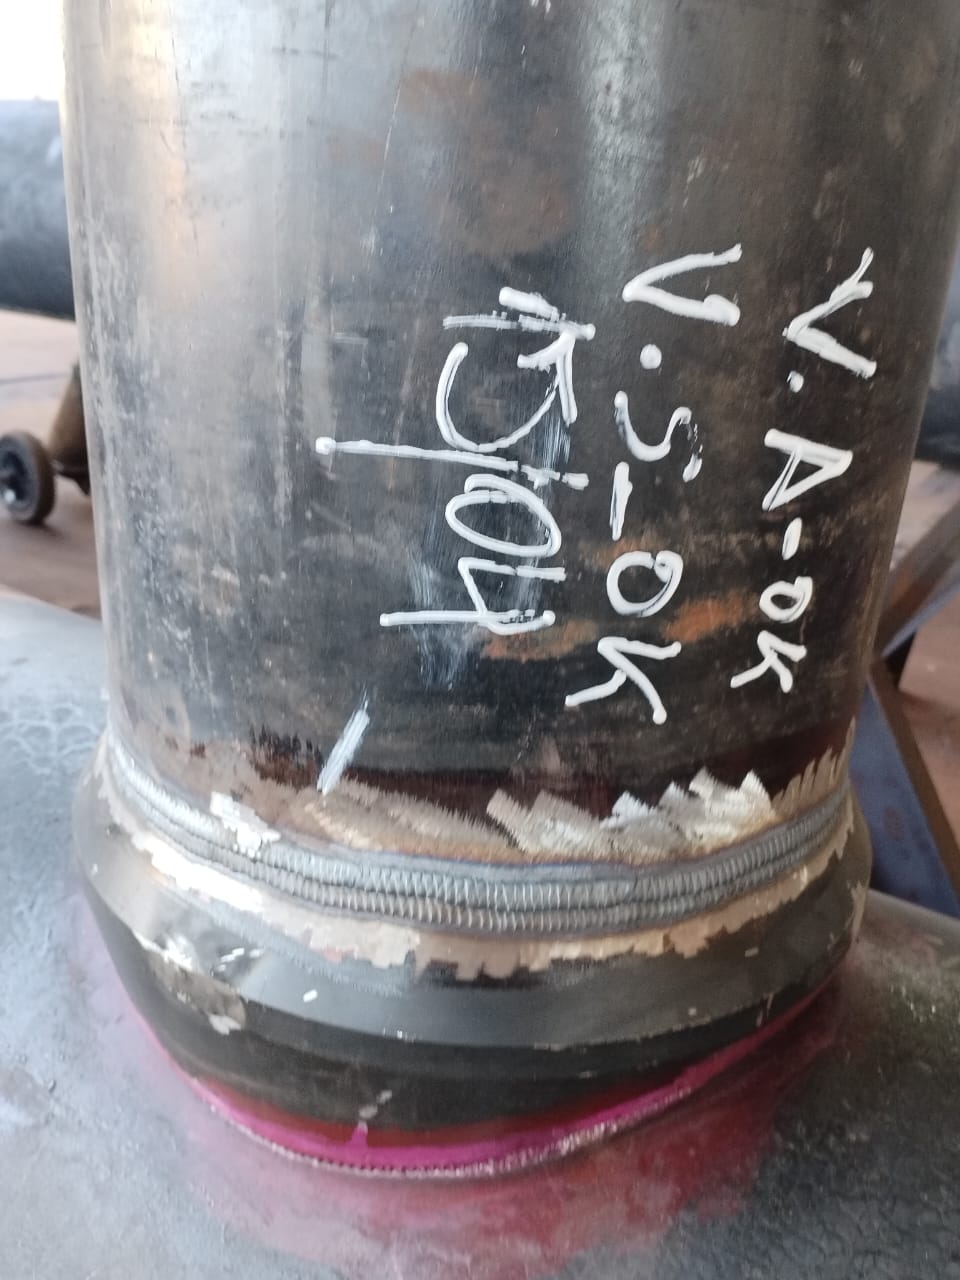 V.A-OK
V.S-OK
15/04